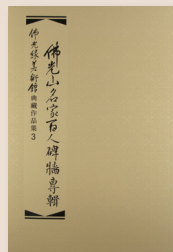 佛光山名家百人碑牆專輯
佛光緣美術館典藏作品集3